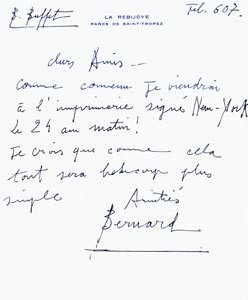 B. Buffet
LA REBIJOYE
PAROS DE SAINT-TROPEZ
Tel. 607.
Chers Amis —
Comme convenu Je viendrai
à l'imprimerie signer New-York
le 24 au matin !
Je crois que comme cela
tout sera beaucoup plus
simple
Amitiés
Bernard